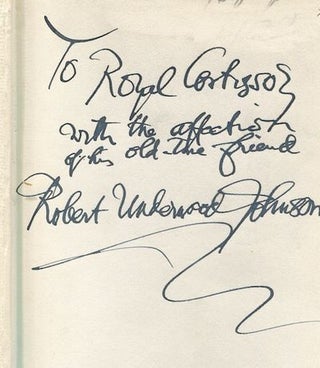 To Royal Cortissoz
with the affection
of his old-time friend
Robert Underwood Johnson